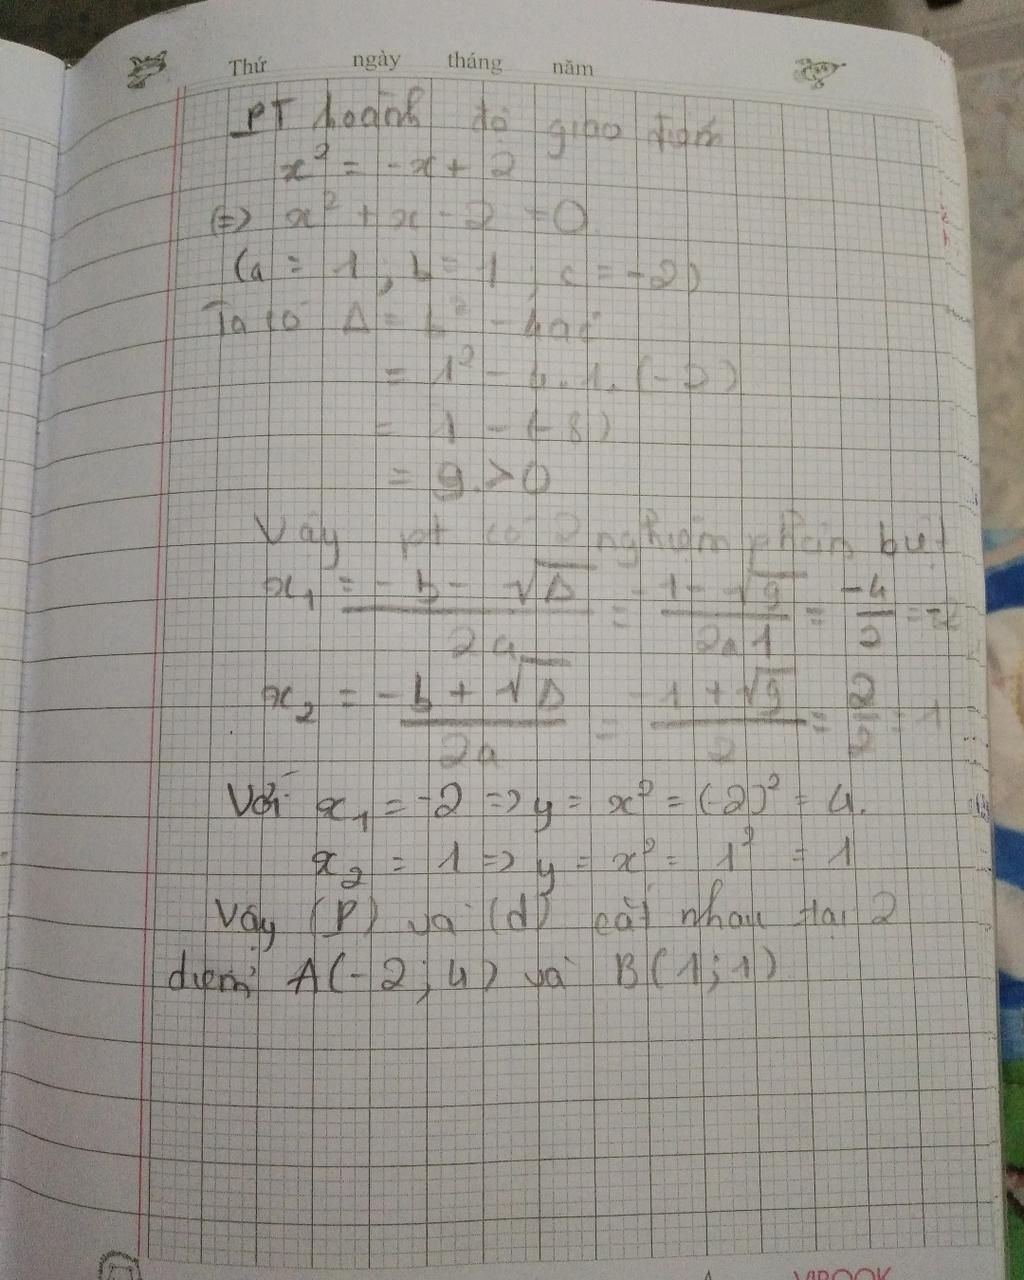 Thứ ngày tháng năm
PT hoành độ giao điểm
x² = -x + 2
(=) x² + x - 2 = 0
(a = 1; b = 1; c = -2)
Ta có Δ = b² - 4ac
= 1² - 4.1.(-2)
= 1 - (-8)
= 9 > 0
Vậy pt có 2 nghiệm phân biệt
x₁ = (-b - √Δ)/2a = (-1 - √9)/2.1 = -4/2 = -2
x₂ = (-b + √Δ)/2a = (-1 + √9)/2 = 2/2 = 1
Với x₁ = -2 => y = x² = (-2)² = 4.
x₂ = 1 => y = x² = 1² = 1
Vậy (P) và (d) cắt nhau tại 2
điểm A(-2; 4) và B(1; 1)
VIBOOK